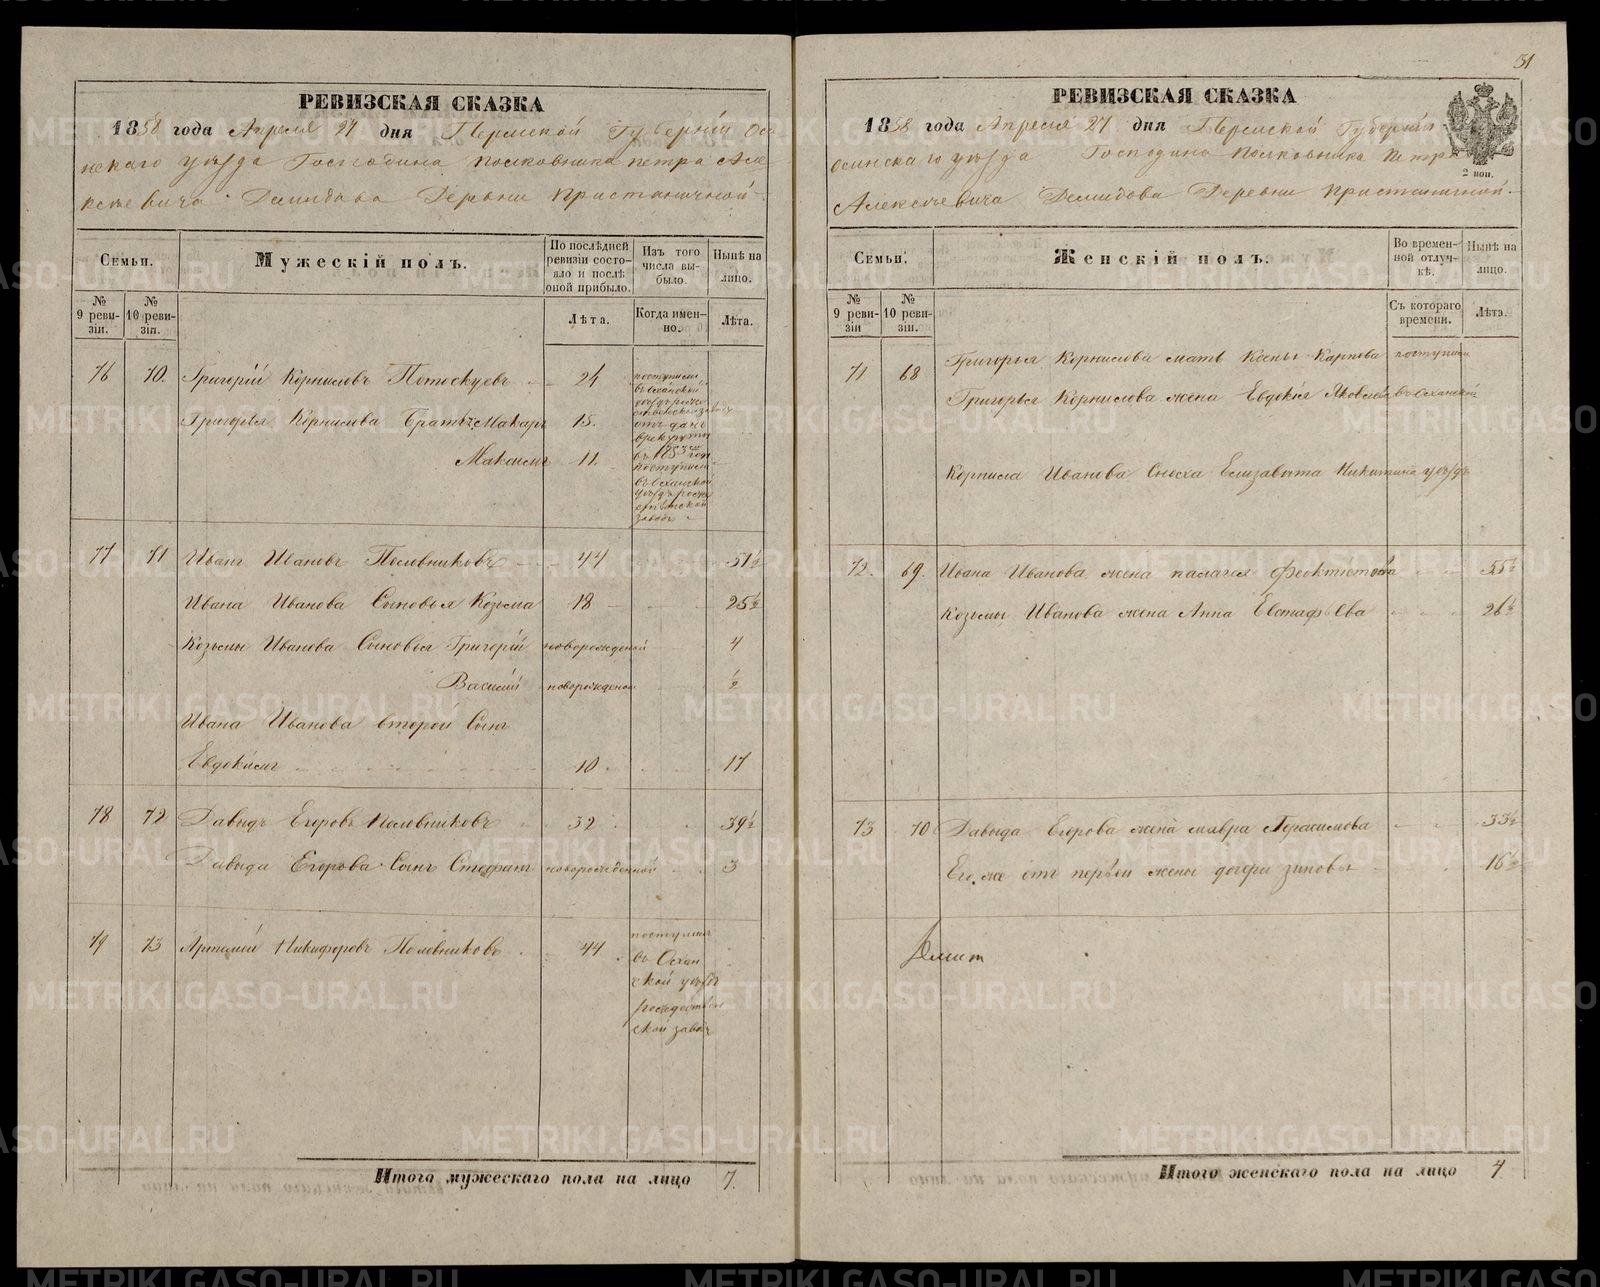 РЕВИЗСКАЯ СКАЗКА
1858 года Апреля 27 дня Пермской Губерніи Ос
инскаго уѣзда Господина Полковника Петра Але
ксѣевича Демидова Деревни Пристаничной
Семьи.
Мужескій полъ.
По послѣдней ревизіи состояло и послѣ оной прибыло.
Изъ того числа выбыло.
Нынѣ на лицо.
№ 9 ревизіи.
№ 10 ревизіи.
Лѣта.
Когда именно.
Лѣта.
76 70. Григорій Корниловъ Потоскуевъ 24
поступили
въ Оханской
уѣздъ
Григорья Корнилова Братъ Макаръ 15.
отъ данъ
в рекруты
Максимъ 11.
поступили
въ Оханской
уѣздъ
заводъ
77 71 Иванъ Ивановъ Половниковъ 44 51½
Ивана Иванова Сыновья Козьма 18 25½
Козьмы Иванова Сыновья Григорій новорожденой 4
Василій новорожденой ½
Ивана Иванова второй Сынъ
Евдокимъ 10 17
78 72 Давыдъ Егоровъ Половниковъ 32 39½
Давыда Егорова Сынъ Стефанъ новорожденной 3
79 73 Артемій Никифоровъ Половниковъ 44
поступилъ
въ Охан
ской уѣздъ
рождествен
ской завод
Итого мужескаго пола на лицо 7.
31
РЕВИЗСКАЯ СКАЗКА
1858 года Апреля 27 дня Пермской Губерніи
Осинскаго уѣзда Господина Полковника Петра
Алексѣевича Демидова Деревни Пристаничной.
2 коп.
Семьи.
Женскій полъ.
Во временной отлучкѣ.
Нынѣ на лицо.
№ 9 ревизіи
№ 10 ревизіи.
Съ котораго времени.
Лѣта.
71 68 Григорья Корнилова мать Карпова поступили
Григорья Корнилова жена Евдокія Яковлева въ Оханской
Корнила Иванова Сноха Елизавѣта Никитина уѣздъ
72. 69. Ивана Иванова жена палагея Феоктистова 55½
Козьмы Иванова жена Анна Евстафьева 26½
73 70 Давыда Егорова жена мавра Герасимова 33½
Его же отъ первой жены дочери зиновья 16½
Итого женскаго пола на лицо 4
METRIKI.GASO-URAL.RU